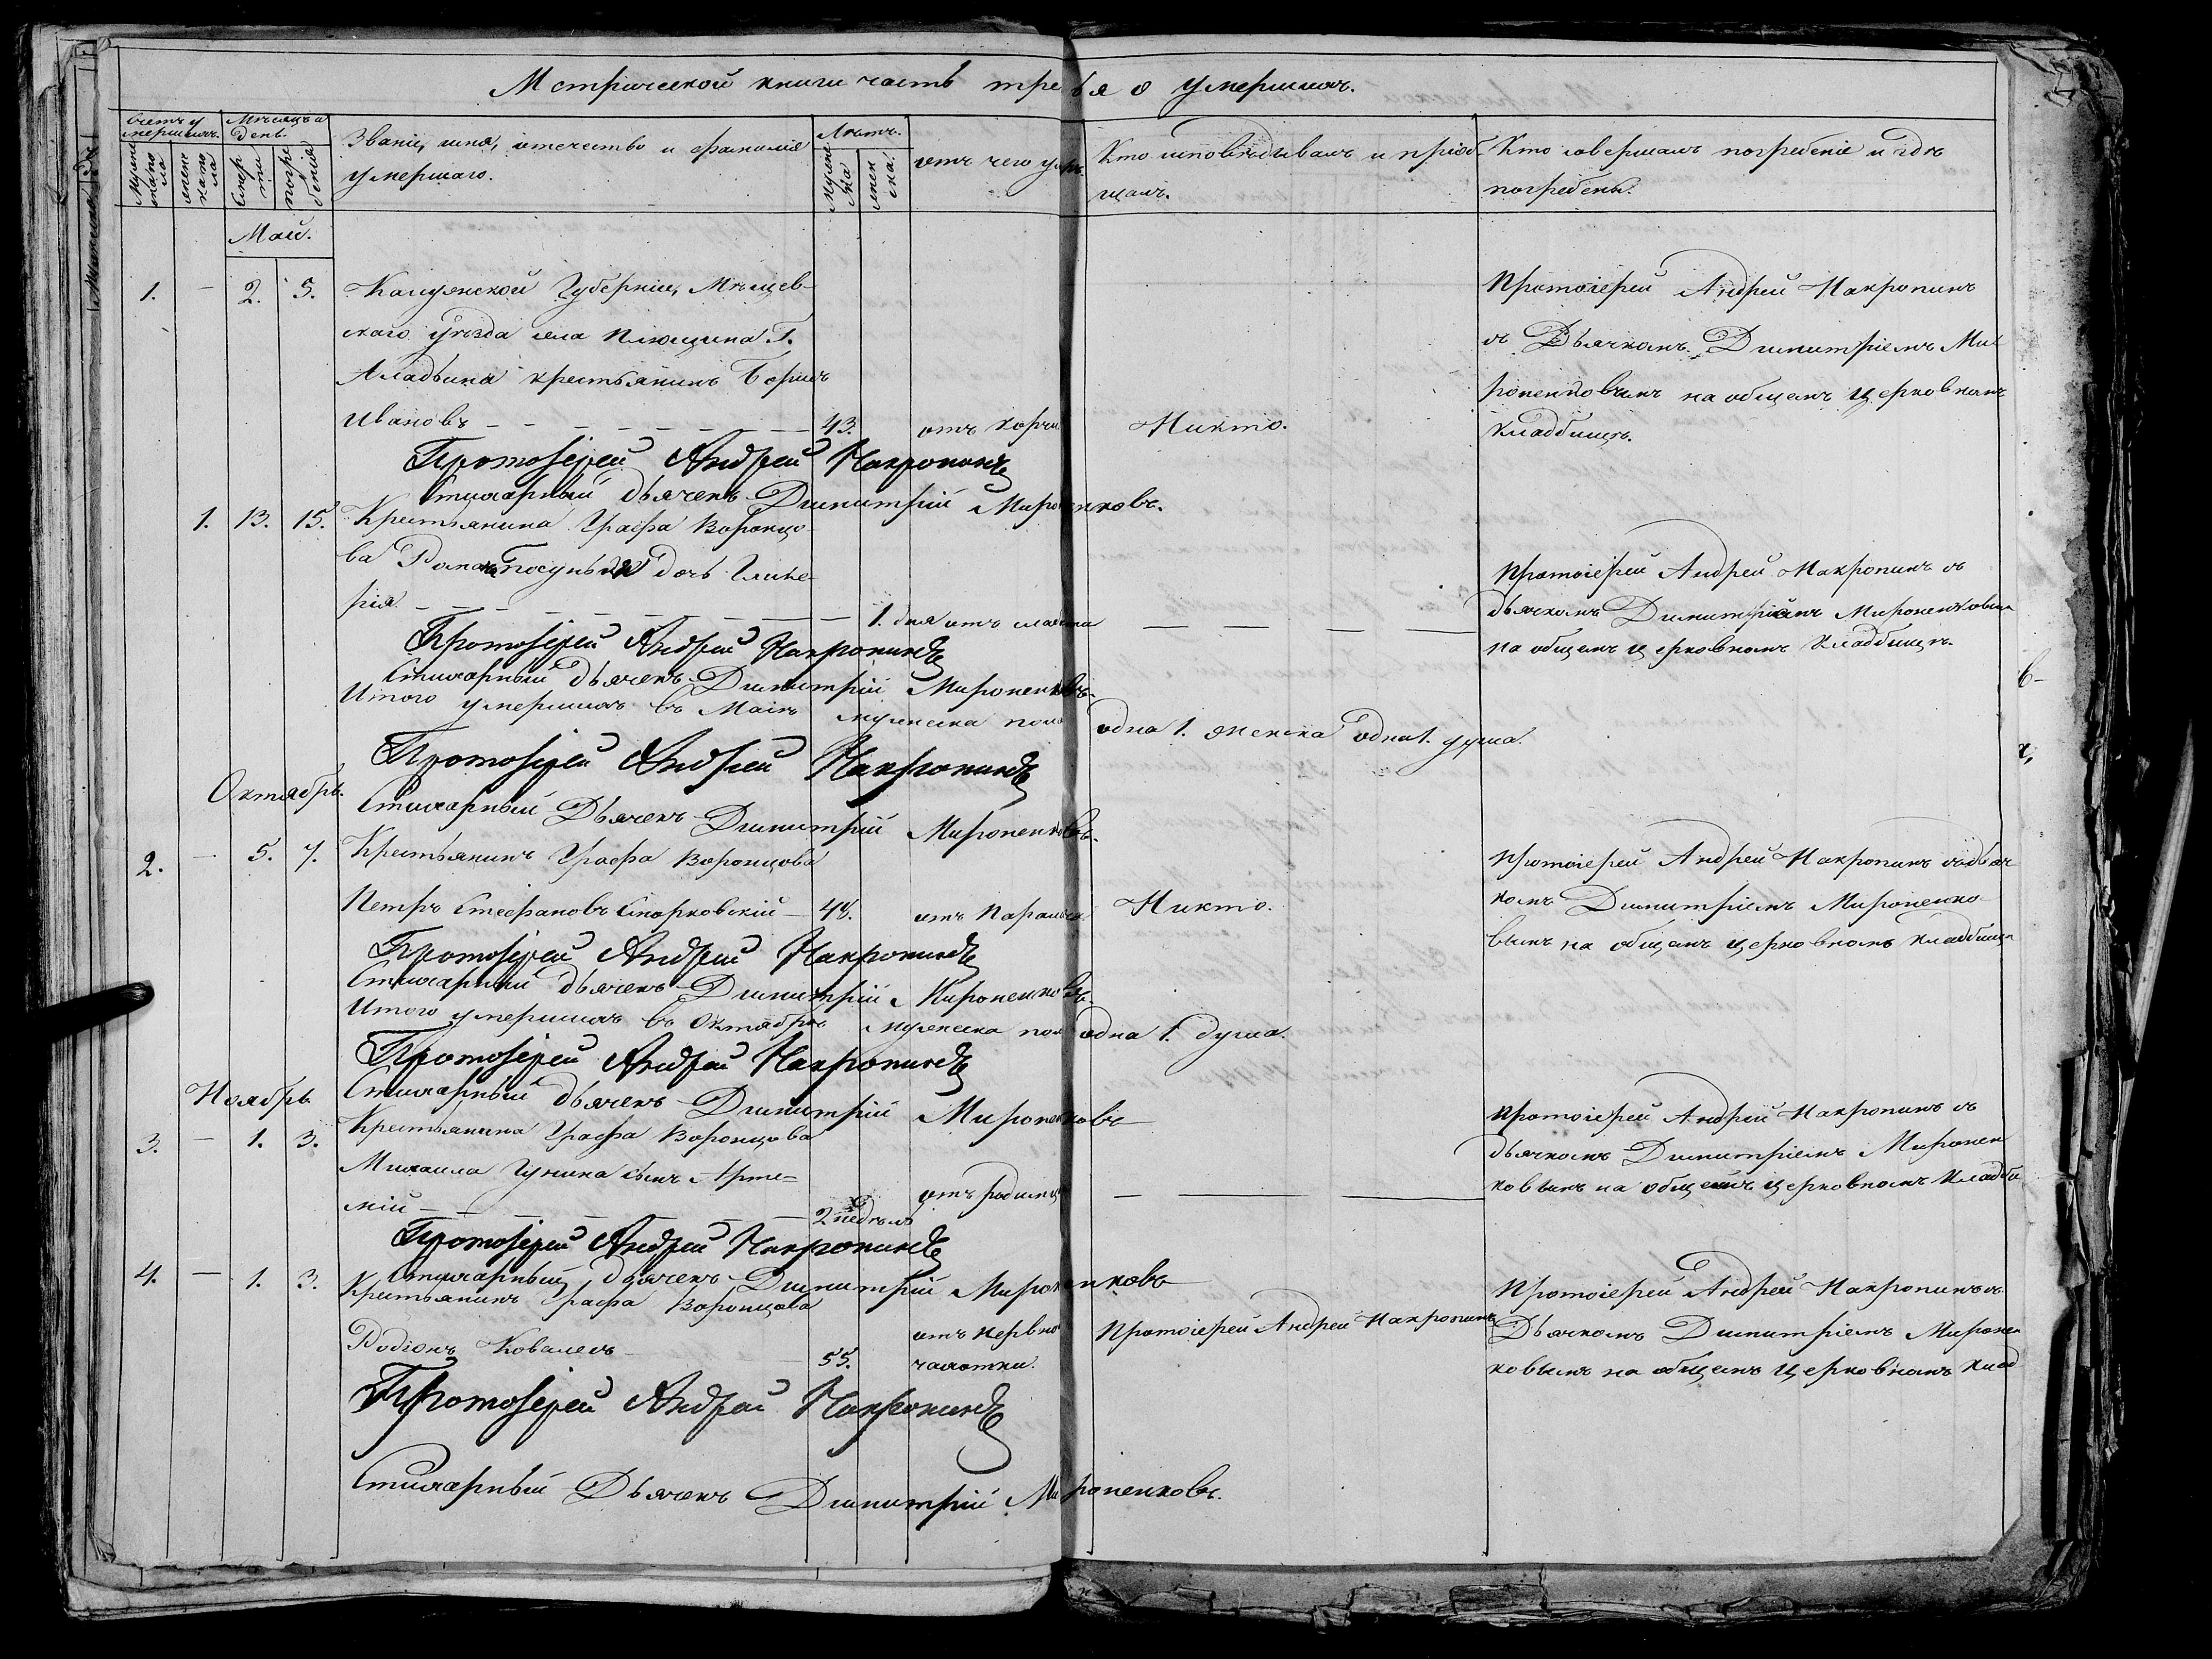 Метрической книги часть третья о умершихъ.
Счетъ у
мершихъ.
Мужеска
го по
ла
женс
каго по
ла
Мѣсяцъ и
день.
Смер
ти
погре
бенія
Званіе, имя, отечество и фамилія
умершаго.
Лѣта.
Мужес
ка
жен
ска.
отъ чего умръ.
Кто исповѣдывалъ и пріоб-
щалъ.
Кто совершалъ погребеніе и гдѣ
погребены.
Май.
1. - 2. 5. Калужской Губерніи, Мѣщев-
скаго уѣзда села Плющина Г.
Аладьина крестьянинъ Борисъ
Ивановъ - - - - - - - - 43. отъ Корчи Никто.
Протоіерей Андрей Накропинъ
съ Дьячкомъ Димитріемъ Ми
роненковымъ на общемъ церковномъ
кладбищѣ.
Протоіерей Андрей Накропинъ
Стихарный дьячекъ Димитрій Мироненковъ.
1. 13. 15. Крестьянина Графа Воронцо-
ва Романа дочь Глике-
рія - - - - - - - - - 1. дня отъ слабости - - - -
Протоіерей Андрей Накропинъ съ
дьячкомъ Димитріемъ Мироненковымъ
на общемъ церковномъ Кладбищѣ.
Протоіерей Андрей Накропинъ
Стихарный дьячекъ Димитрій Мироненковъ.
Итого умершихъ въ Маіѣ мужеска пола одна 1. женска одна 1. душа.
Протоіерей Андрей Накропинъ
Стихарный Дьячекъ Димитрій Мироненковъ.
Октябрь.
2. - 5. 7. Крестьянинъ Графа Воронцова
Петръ Стефановъ Сторковскій - 48. отъ Паралича Никто.
Протоіерей Андрей Накропинъ съ дьяч
комъ Димитріемъ Мироненко
вымъ на общемъ церковномъ кладбищѣ
Протоіерей Андрей Накропинъ
Стихарный дьячекъ Димитрій Мироненковъ.
Итого умершихъ въ Октябрѣ мужеска пола одна 1. душа.
Протоіерей Андрей Накропинъ
Стихарный дьячекъ Димитрій Мироненковъ
Ноябрь
3. - 1. 3. Крестьянина Графа Воронцова
Михаила Гуника сынъ Арте=
мій - - - - - - - 2 недѣль отъ родимца - -
Протоіерей Андрей Накропинъ съ
дьячкомъ Димитріемъ Миронен
ковымъ на общемъ церковномъ Кладби
Протоіерей Андрей Накропинъ
Стихарный дьячекъ Димитрій Мироненковъ
4. - 1. 3. Крестьянинъ Графа Воронцова
Родіонъ Ковалевъ - - 55. отъ нервной
чахотки.
Протоіерей Андрей Накропинъ
Протоіерей Андрей Накропинъ съ
Дьячкомъ Димитріемъ Миронен
ковымъ на общемъ церковномъ клад
Протоіерей Андрей Накропинъ
Стихарный Дьячекъ Димитрій Мироненковъ.